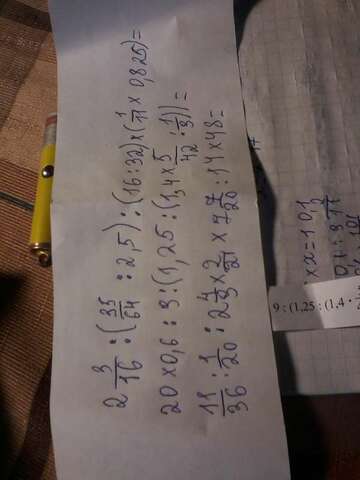 2 3/16 : (35/64 : 2,5) : (16 : 32) × (1/11 × 0,825) =
20 × 0,6 : 3 : (1,25 : (1,4 × 5/42 : 1/3)) =
11/36 : 1/20 : 2 4/3 × 2/21 × 7 7/20 : 14 × 48 =
× x = 10,1
9 : (1,25 : (1,4 ·